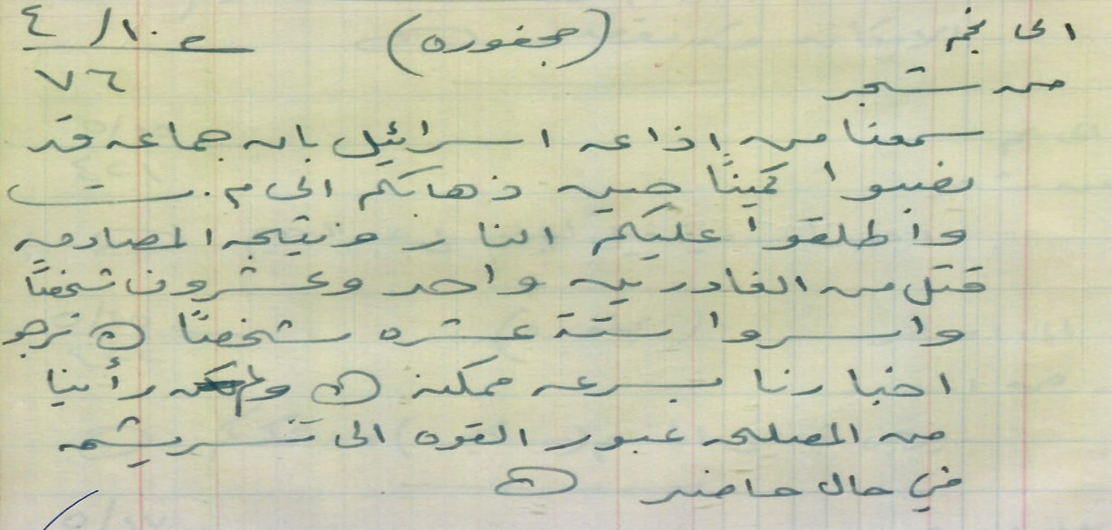 الى نجم (محفوره) ص ١٠/ ٤
من شجر ٧٦
سمعنا من إذاعه اسرائيل بان جماعه قد
نصبوا كمينًا حين ذهابكم الى م. ت
واطلقوا عليكم النار ونتيجه المصادمه
قتل من الغادرين واحد وعشرون شخصًا
واسروا ستة عشره شخصًا ن نرجو
اخبارنا بسرعه ممكنه ن ولم رأينا
من المصلحه عبور القوه الى
في حال حاضر ن